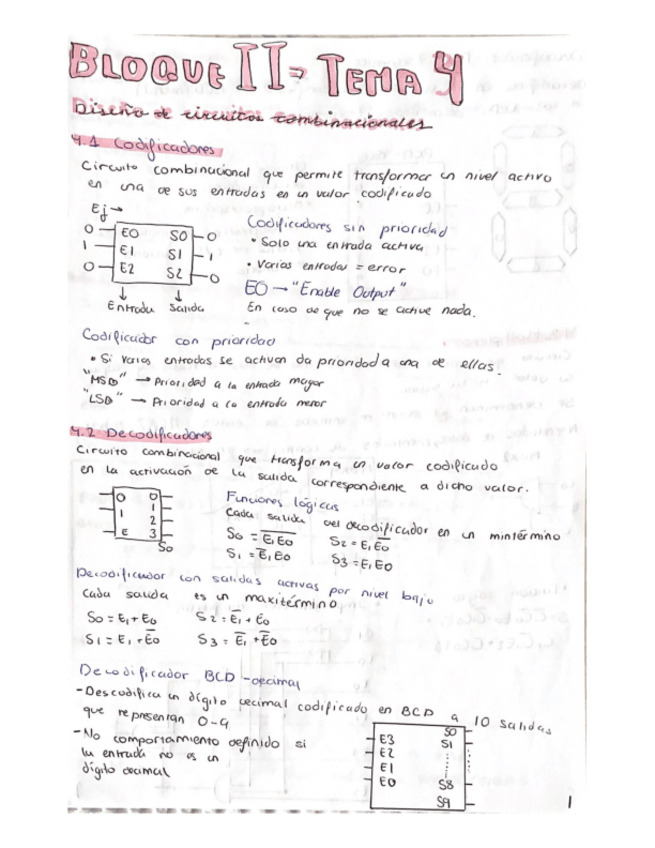 BLOQUE II ⇒ TEMA 4
Diseño de circuitos combinacionales
4.1 Codificadores
Circuito combinacional que permite transformar un nivel activo
en una de sus entradas en un valor codificado
Ej →
0 E0 S0 0
1 E1 S1 1
0 E2 S2 0
↓ ↓
Entrada Salida
Codificadores sin prioridad
• Solo una entrada activa
• Varias entradas = error
EO → "Enable Output"
En caso de que no se active nada.
Codificador con prioridad
• Si varias entradas se activan da prioridad a una de ellas.
"MSD" → Prioridad a la entrada mayor
"LSD" → Prioridad a la entrada menor
4.2 Decodificadores
Circuito combinacional que transforma un valor codificado
en la activación de la salida correspondiente a dicho valor.
0 0
1 1
2
E 3
So
Funciones lógicas
Cada salida del decodificador en un mintérmino
S0 = E̅1E̅0 S2 = E1E̅0
S1 = E̅1E0 S3 = E1E0
Decodificador con salidas activas por nivel bajo
Cada salida es un maxitérmino
S0 = E1 + E0 S2 = E̅1 + E0
S1 = E1 + E̅0 S3 = E̅1 + E̅0
Decodificador BCD - decimal
- Descodifica un dígito decimal codificado en BCD a 10 salidas
que representan 0-9
- No comportamiento definido si
la entrada no es un
dígito decimal
S0
E3 S1
E2
E1
E0 S8
S9
1